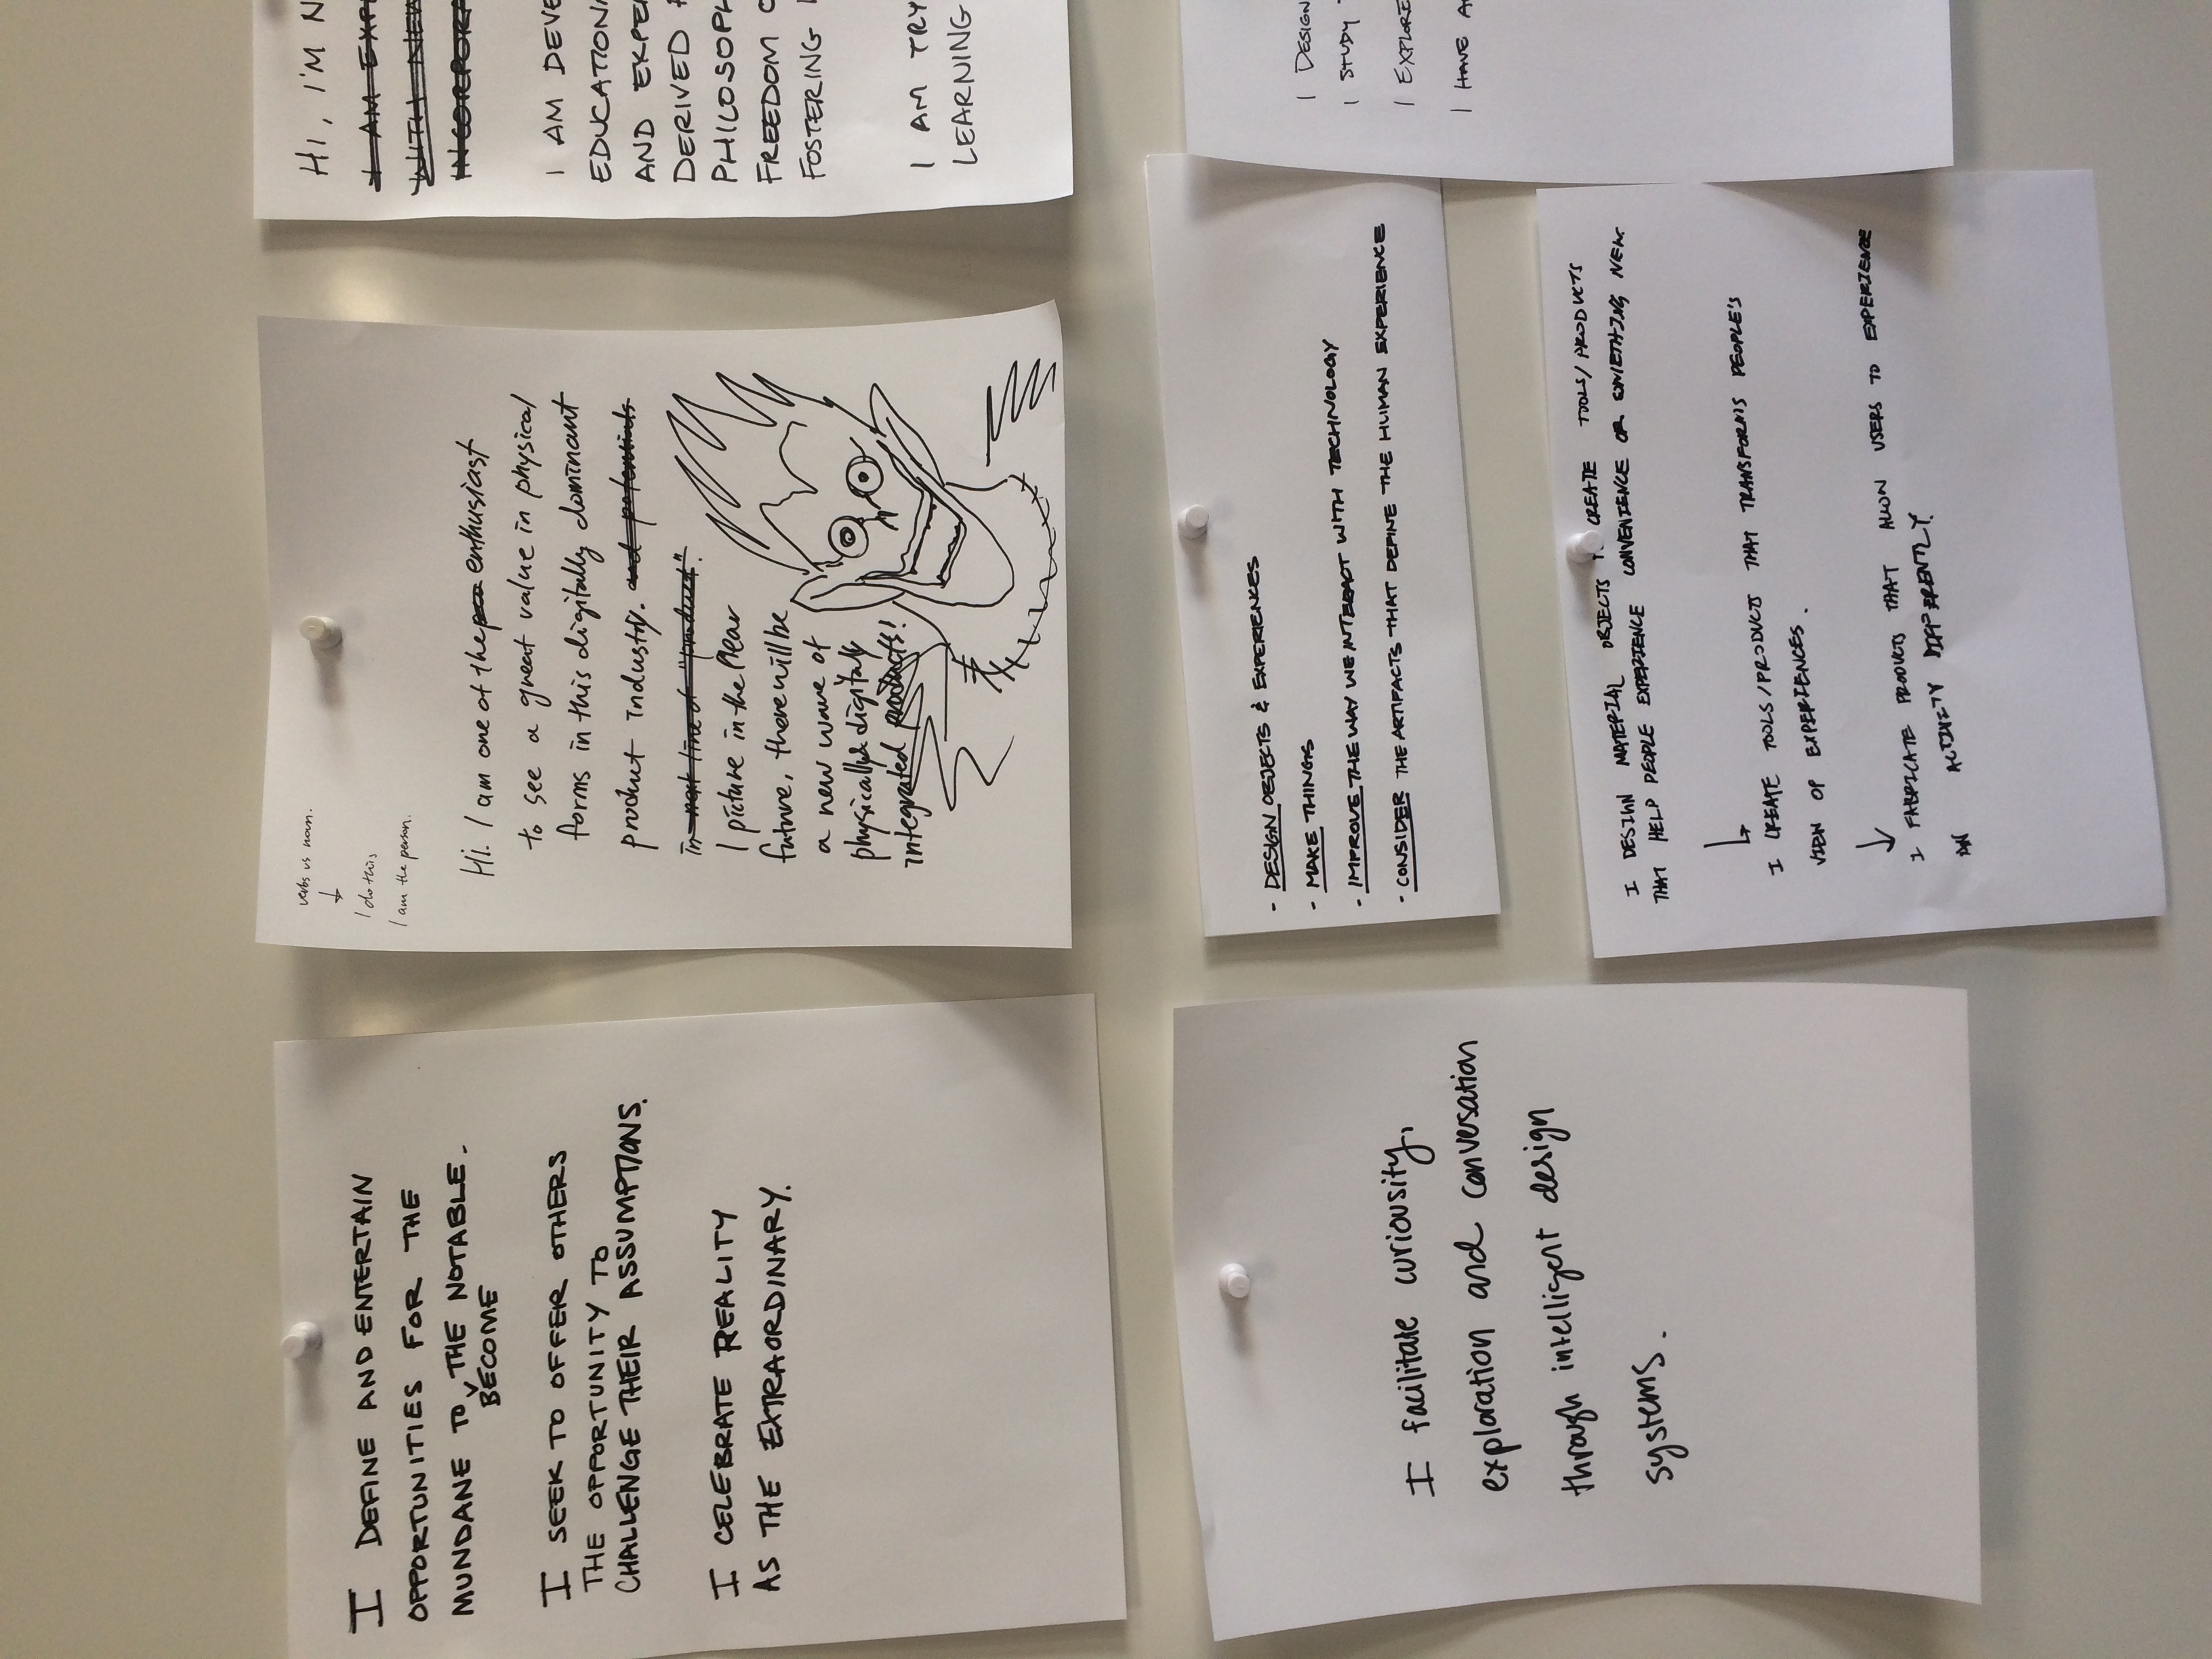 I DEFINE AND ENTERTAIN
OPPORTUNITIES FOR THE
MUNDANE TO THE NOTABLE.
BECOME
I SEEK TO OFFER OTHERS
THE OPPORTUNITY TO
CHALLENGE THEIR ASSUMPTIONS.
I CELEBRATE REALITY
AS THE EXTRAORDINARY.
verbs vs noun.
I do this
I am the person.
Hi. I am one of the enthusiast
to see a great value in physical
forms in this digitally dominant
product industry. and potentials
in next line of "product".
I picture in the near
future, there will be
a new wave of
physically & digitally
integrated products!
HI, I'M N
I AM EXP
WITH NEW
INCORPORA
I AM DEVE
EDUCATION
AND EXPE
DERIVED
PHILOSOPH
FREEDOM O
FOSTERING
I AM TRY
LEARNING
I facilitate curiousity,
exploration and conversation
through intelligent design
systems.
- DESIGN OBJECTS & EXPERIENCES
- MAKE THINGS
- IMPROVE THE WAY WE INTERACT WITH TECHNOLOGY
- CONSIDER THE ARTIFACTS THAT DEFINE THE HUMAN EXPERIENCE
I DESIGN MATERIAL OBJECTS CREATE TOOLS/PRODUCTS
THAT HELP PEOPLE EXPERIENCE CONVENIENCE OR SOMETHING NEW.
I CREATE TOOLS/PRODUCTS THAT TRANSFORMS PEOPLE'S
VIEW OF EXPERIENCES.
I FABRICATE PRODUCTS THAT ALLOW USERS TO EXPERIENCE
AN ACTIVITY DIFFERENTLY.
I DESIGN
I STUDY
I EXPLORE
I HAVE